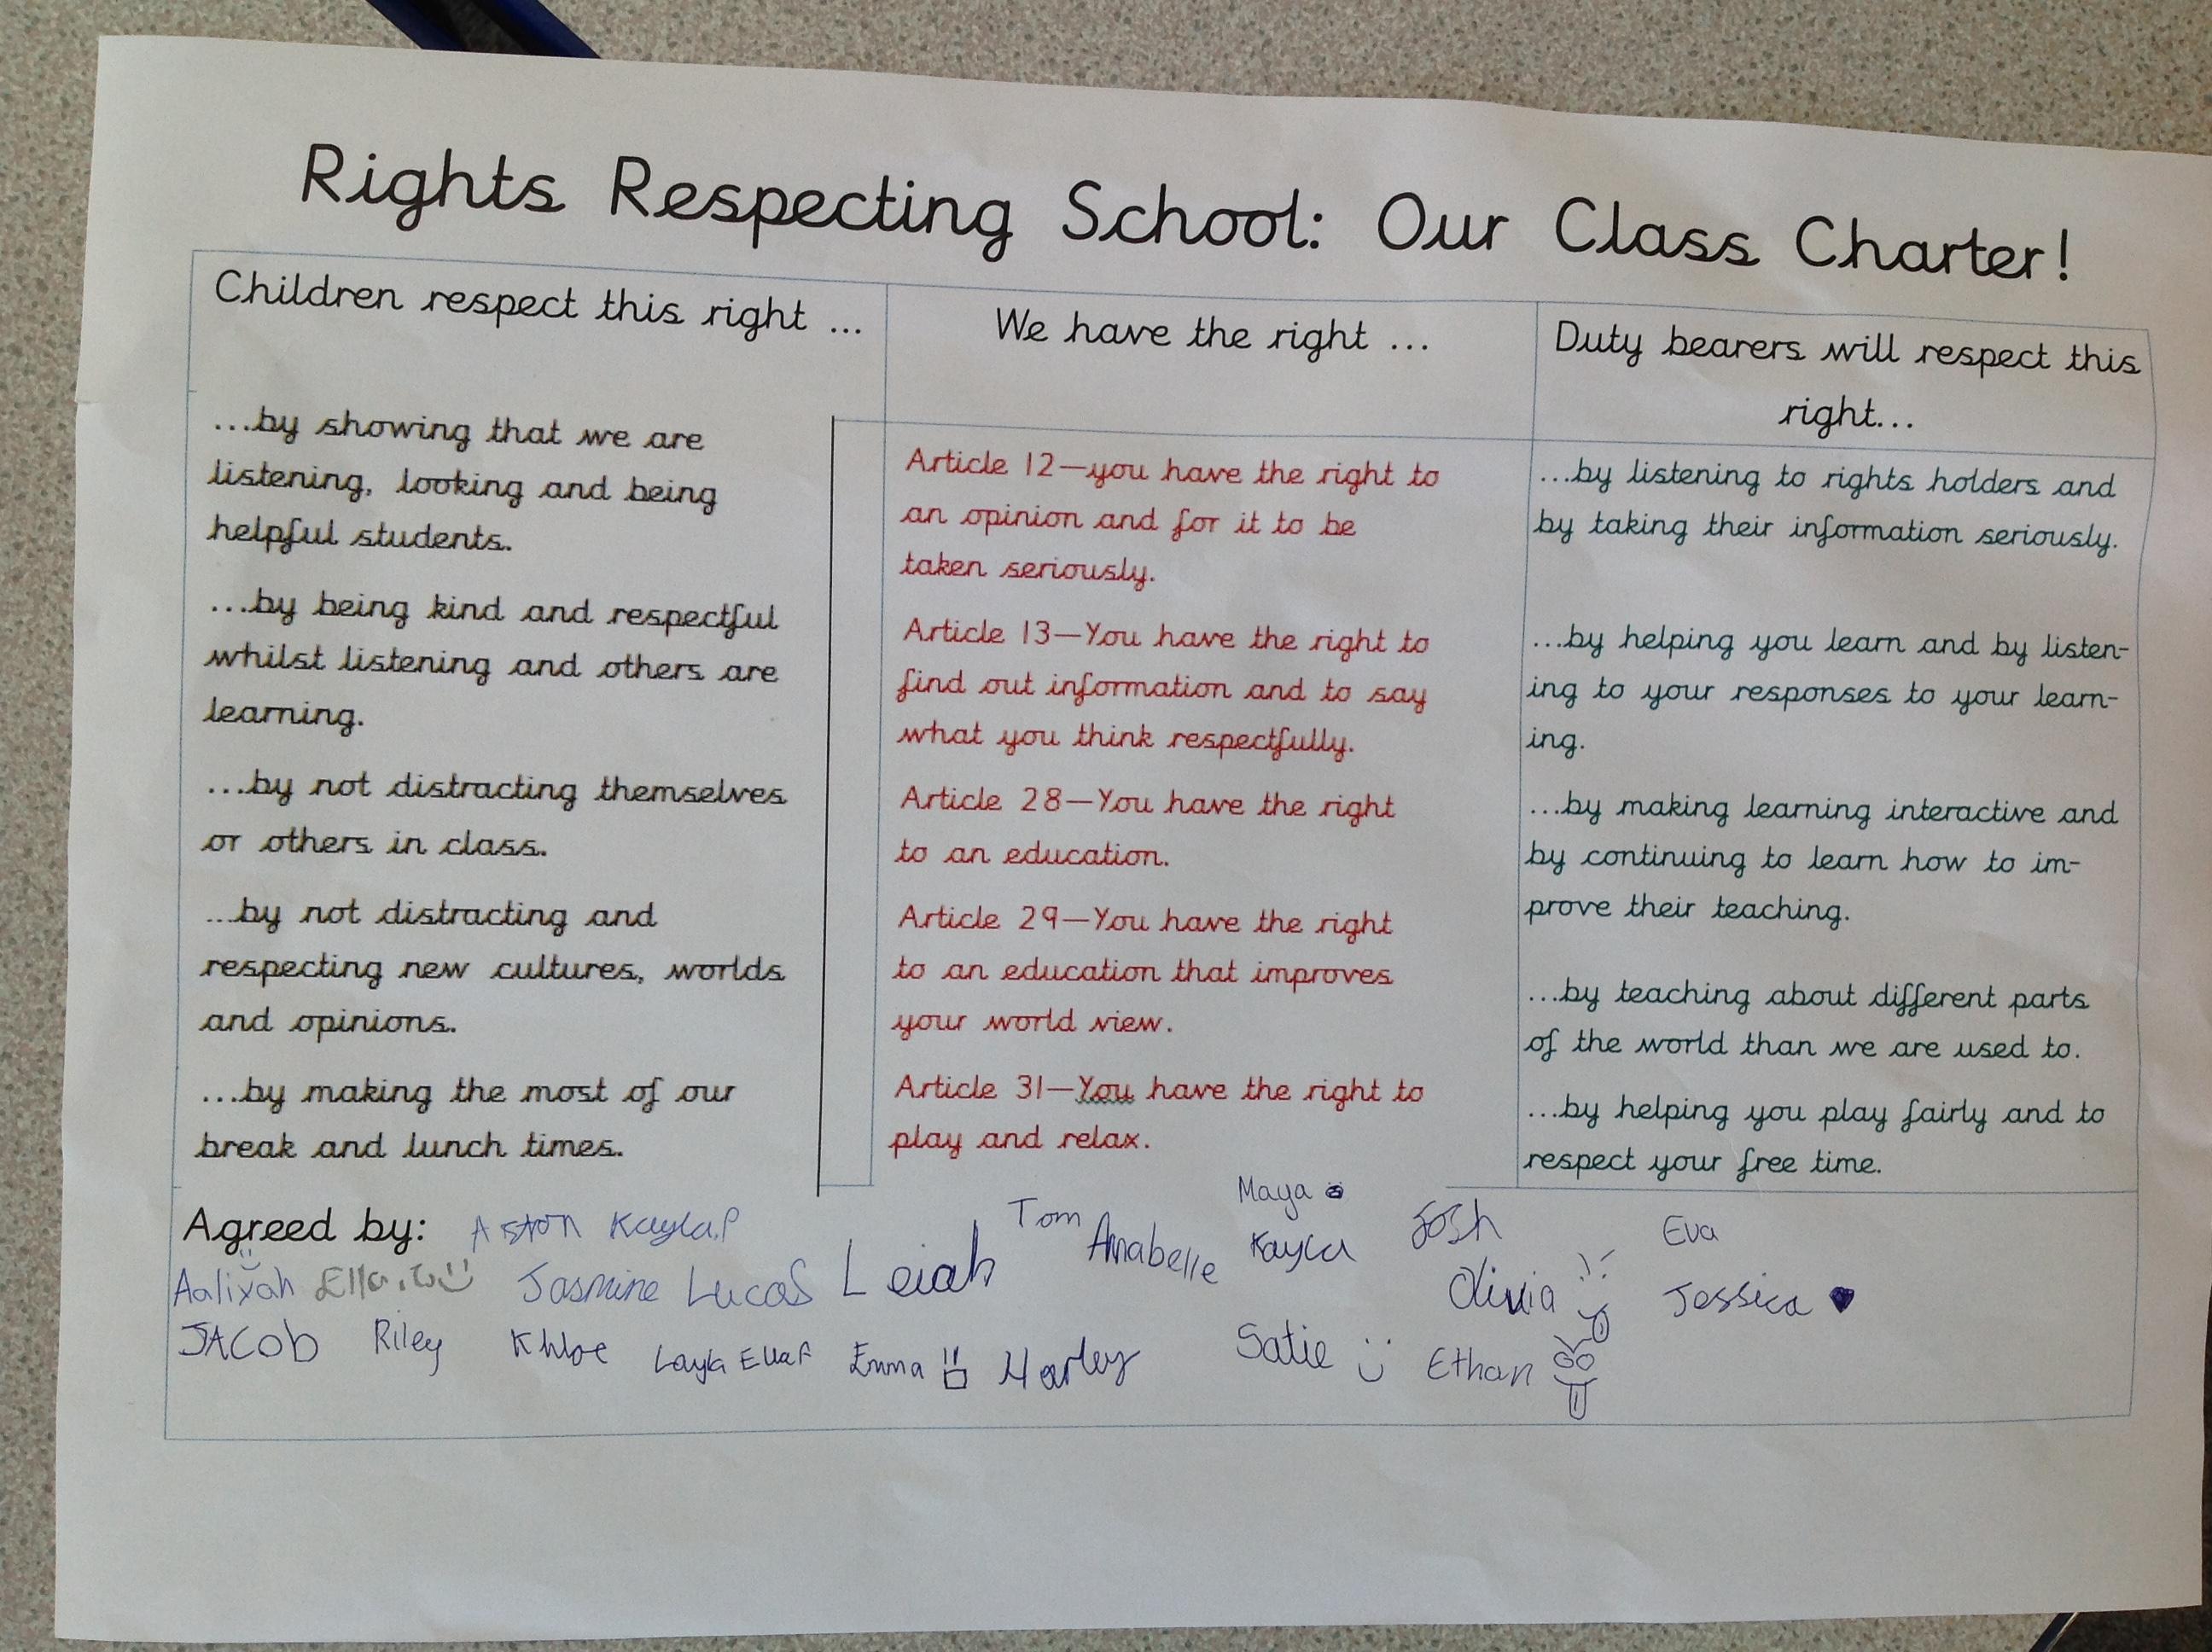 Rights Respecting School: Our Class Charter!
Children respect this right ...
...by showing that we are
listening, looking and being
helpful students.
...by being kind and respectful
whilst listening and others are
learning.
...by not distracting themselves
or others in class.
...by not distracting and
respecting new cultures, worlds
and opinions.
...by making the most of our
break and lunch times.
We have the right ...
Article 12—you have the right to
an opinion and for it to be
taken seriously.
Article 13—You have the right to
find out information and to say
what you think respectfully.
Article 28—You have the right
to an education.
Article 29—You have the right
to an education that improves
your world view.
Article 31—You have the right to
play and relax.
Duty bearers will respect this
right...
...by listening to rights holders and
by taking their information seriously.
...by helping you learn and by listen-
ing to your responses to your learn-
ing.
...by making learning interactive and
by continuing to learn how to im-
prove their teaching.
...by teaching about different parts
of the world than we are used to.
...by helping you play fairly and to
respect your free time.
Agreed by: Aston Kayla.P Tom Maya Josh Eva
Aaliyah Ella.W Jasmine Lucas Leiah Annabelle Kayla Olivia Jessica
JACOb Riley Khloe Layla Ella F Emma Harley Satie Ethan